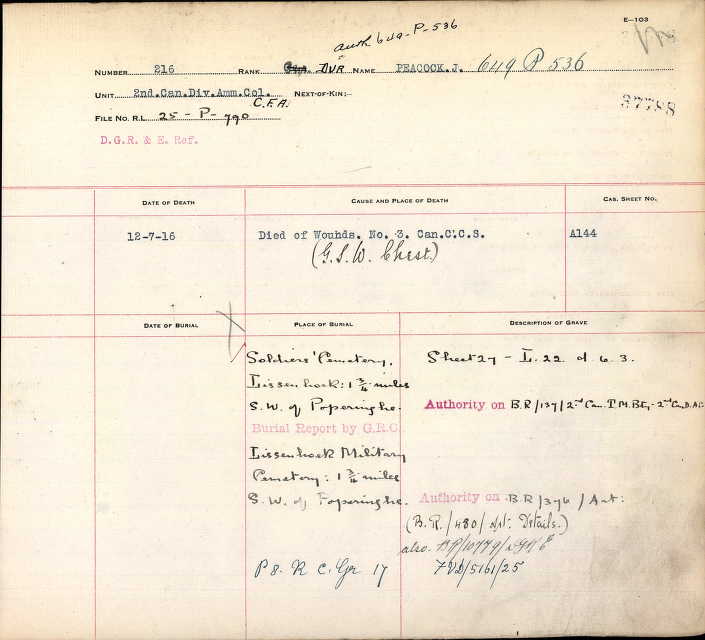 E-103
auth 649-P-536
NUMBER 216 RANK DVR NAME PEACOCK.J. 649 P 536
UNIT 2nd.Can.Div.Amm.Col. NEXT-OF-KIN:-
C.F.A.
37788
FILE NO. R.L. 25 - P - 790
D.G.R. & E. Ref.
DATE OF DEATH CAUSE AND PLACE OF DEATH CAS. SHEET NO.
12-7-16 Died of Wounds. No. 3. Can.C.C.S. A144
(G.S.W. Chest.)
DATE OF BURIAL PLACE OF BURIAL DESCRIPTION OF GRAVE
Soldiers' Cemetery, Sheet 27 - L. 22. d. 6. 3.
Lissenhoek: 1 3/4 miles
S.W. of Poperinghe. Authority on B.R/137/2nd Can. T.M. Bty - 2nd Can. D.A.
Burial Report by G.R.C.
Lissenhoek Military
Cemetery: 1 3/4 miles
S.W. of Poperinghe. Authority on B.R/376/
(B.R./480/ Details.)
also.
P 8. R C. Gr 17 7VD/5161/25